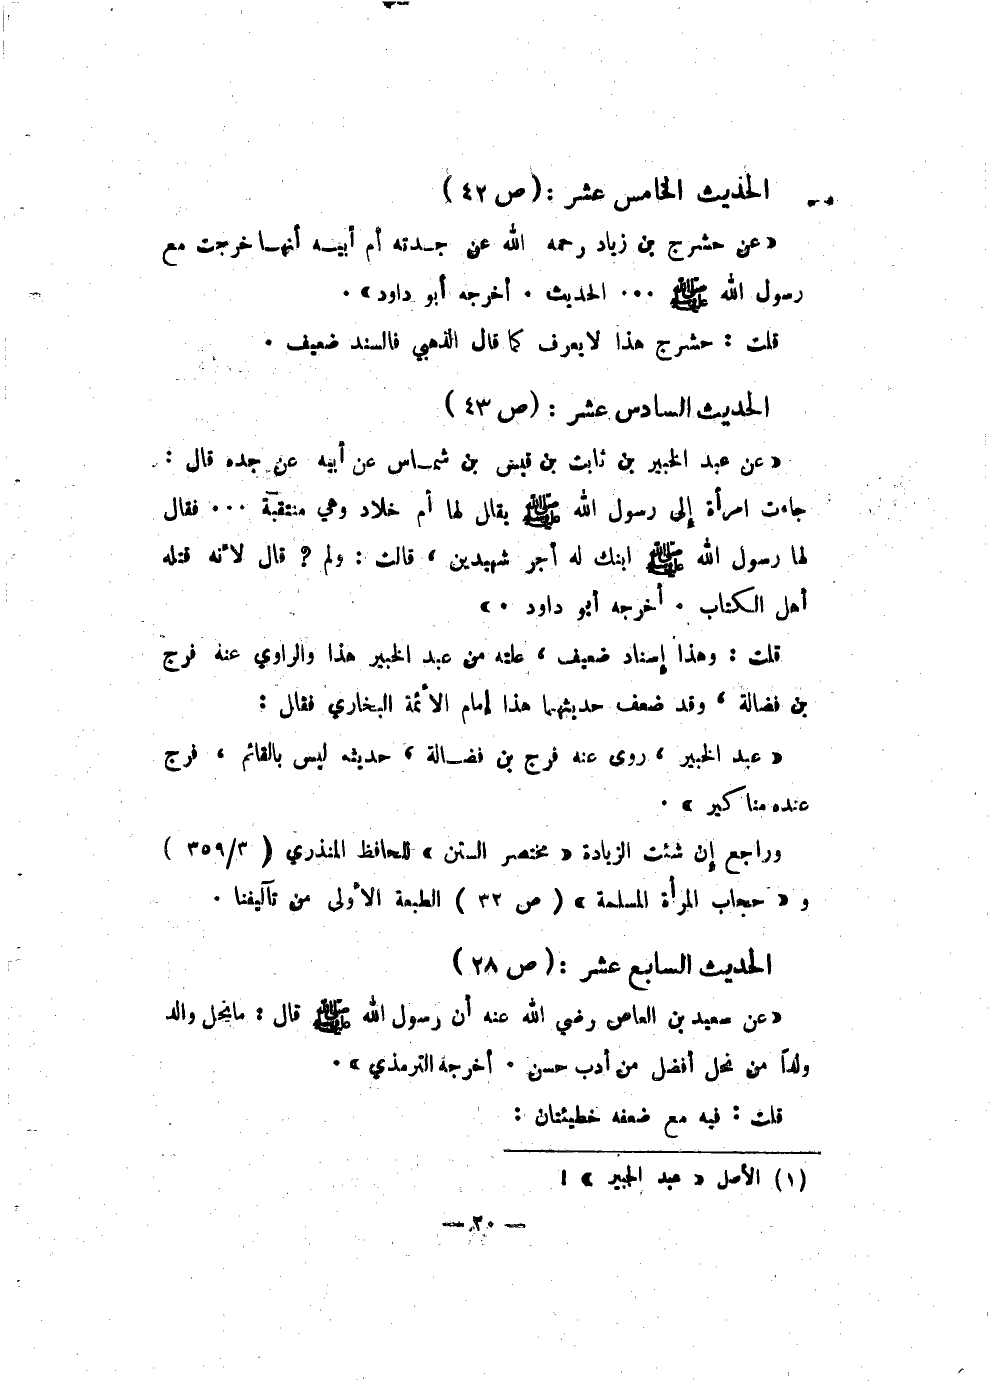 الحديث الخامس عشر : ( ص ٤٢ )
« عن حشرج بن زياد رحمه الله عن جـدته أم أبيـه أنهـا خرجت مع
رسول الله ﷺ ... الحديث . أخرجه أبو داود » .
قلت : حشرج هذا لا يعرف كما قال الذهبي فالسند ضعيف .
الحديث السادس عشر : ( ص ٤٣ )
« عن عبد الخبير بن ثابت بن قيس بن شمـاس عن أبيه عن جده قال :
جاءت امرأة إلى رسول الله ﷺ يقال لها أم خلاد وهي منتقبة ... فقال
لها رسول الله ﷺ ابنك له أجر شهيدين ، قالت : ولم ? قال لأنه قتله
أهل الكتاب . أخرجه أبو داود . »
قلت : وهذا إسناد ضعيف ، علته من عبد الخبير هذا والراوي عنه فرج
بن فضالة ، وقد ضعف حديثهما هذا إمام الأئمة البخاري فقال :
« عبد الخبير ، روى عنه فرج بن فضـالة ، حديثه ليس بالقائم ، فرج
عنده مناكير » .
وراجع إن شئت الزيادة « مختصر السنن » للحافظ المنذري ( ٣/٣٥٩ )
و « حجاب المرأة المسلمة » ( ص ٣٢ ) الطبعة الأولى من تآليفنا .
الحديث السابع عشر : ( ص ٢٨ )
« عن سعيد بن العاص رضي الله عنه أن رسول الله ﷺ قال : ما نحل والد
ولداً من نحل أفضل من أدب حسن . أخرجه الترمذي » .
قلت : فيه مع ضعفه خطيئتان :
(١) الأصل « عبد الجبير » !
— ٢٠ —